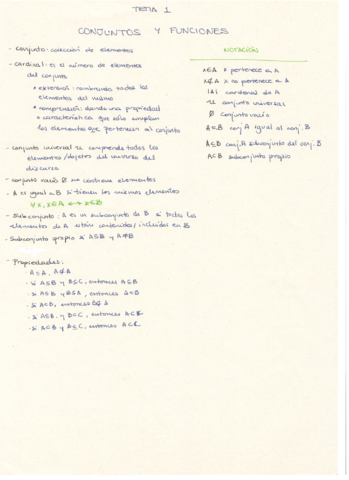 TEMA 1
CONJUNTOS Y FUNCIONES
- conjunto: colección de elementos
- cardinal: es el número de elementos
del conjunto
* extensión: nombrando todos los
elementos del mismo
* comprensión: dando una propiedad
o característica que sólo cumplan
los elementos que pertenecen al conjunto
- conjunto universal U comprende todos los
elementos/objetos del universo del
discurso
- conjunto vacío Ø no contiene elementos
- A es igual a B si tienen los mismos elementos
∀x, x∈A ↔ x∈B
- Subconjunto: A es un subconjunto de B si todos los
elementos de A están contenidos/incluidos en B
- Subconjunto propio si A⊆B y A≠B
- Propiedades:
· A⊆A, A⊄A
· si A⊆B y B⊆C, entonces A⊆B
· si A⊆B y B⊆A, entonces A=B
· si A⊂B, entonces B⊄A
· si A⊆B y B⊂C, entonces A⊂C
· si A⊂B y B⊆C, entonces A⊂C
NOTACIÓN
x∈A x pertenece a A
x∉A x no pertenece a A
|A| cardinal de A
U conjunto universal
Ø conjunto vacío
A=B conj. A igual al conj. B
A⊆B conj. A subconjunto del conj. B
A⊂B subconjunto propio